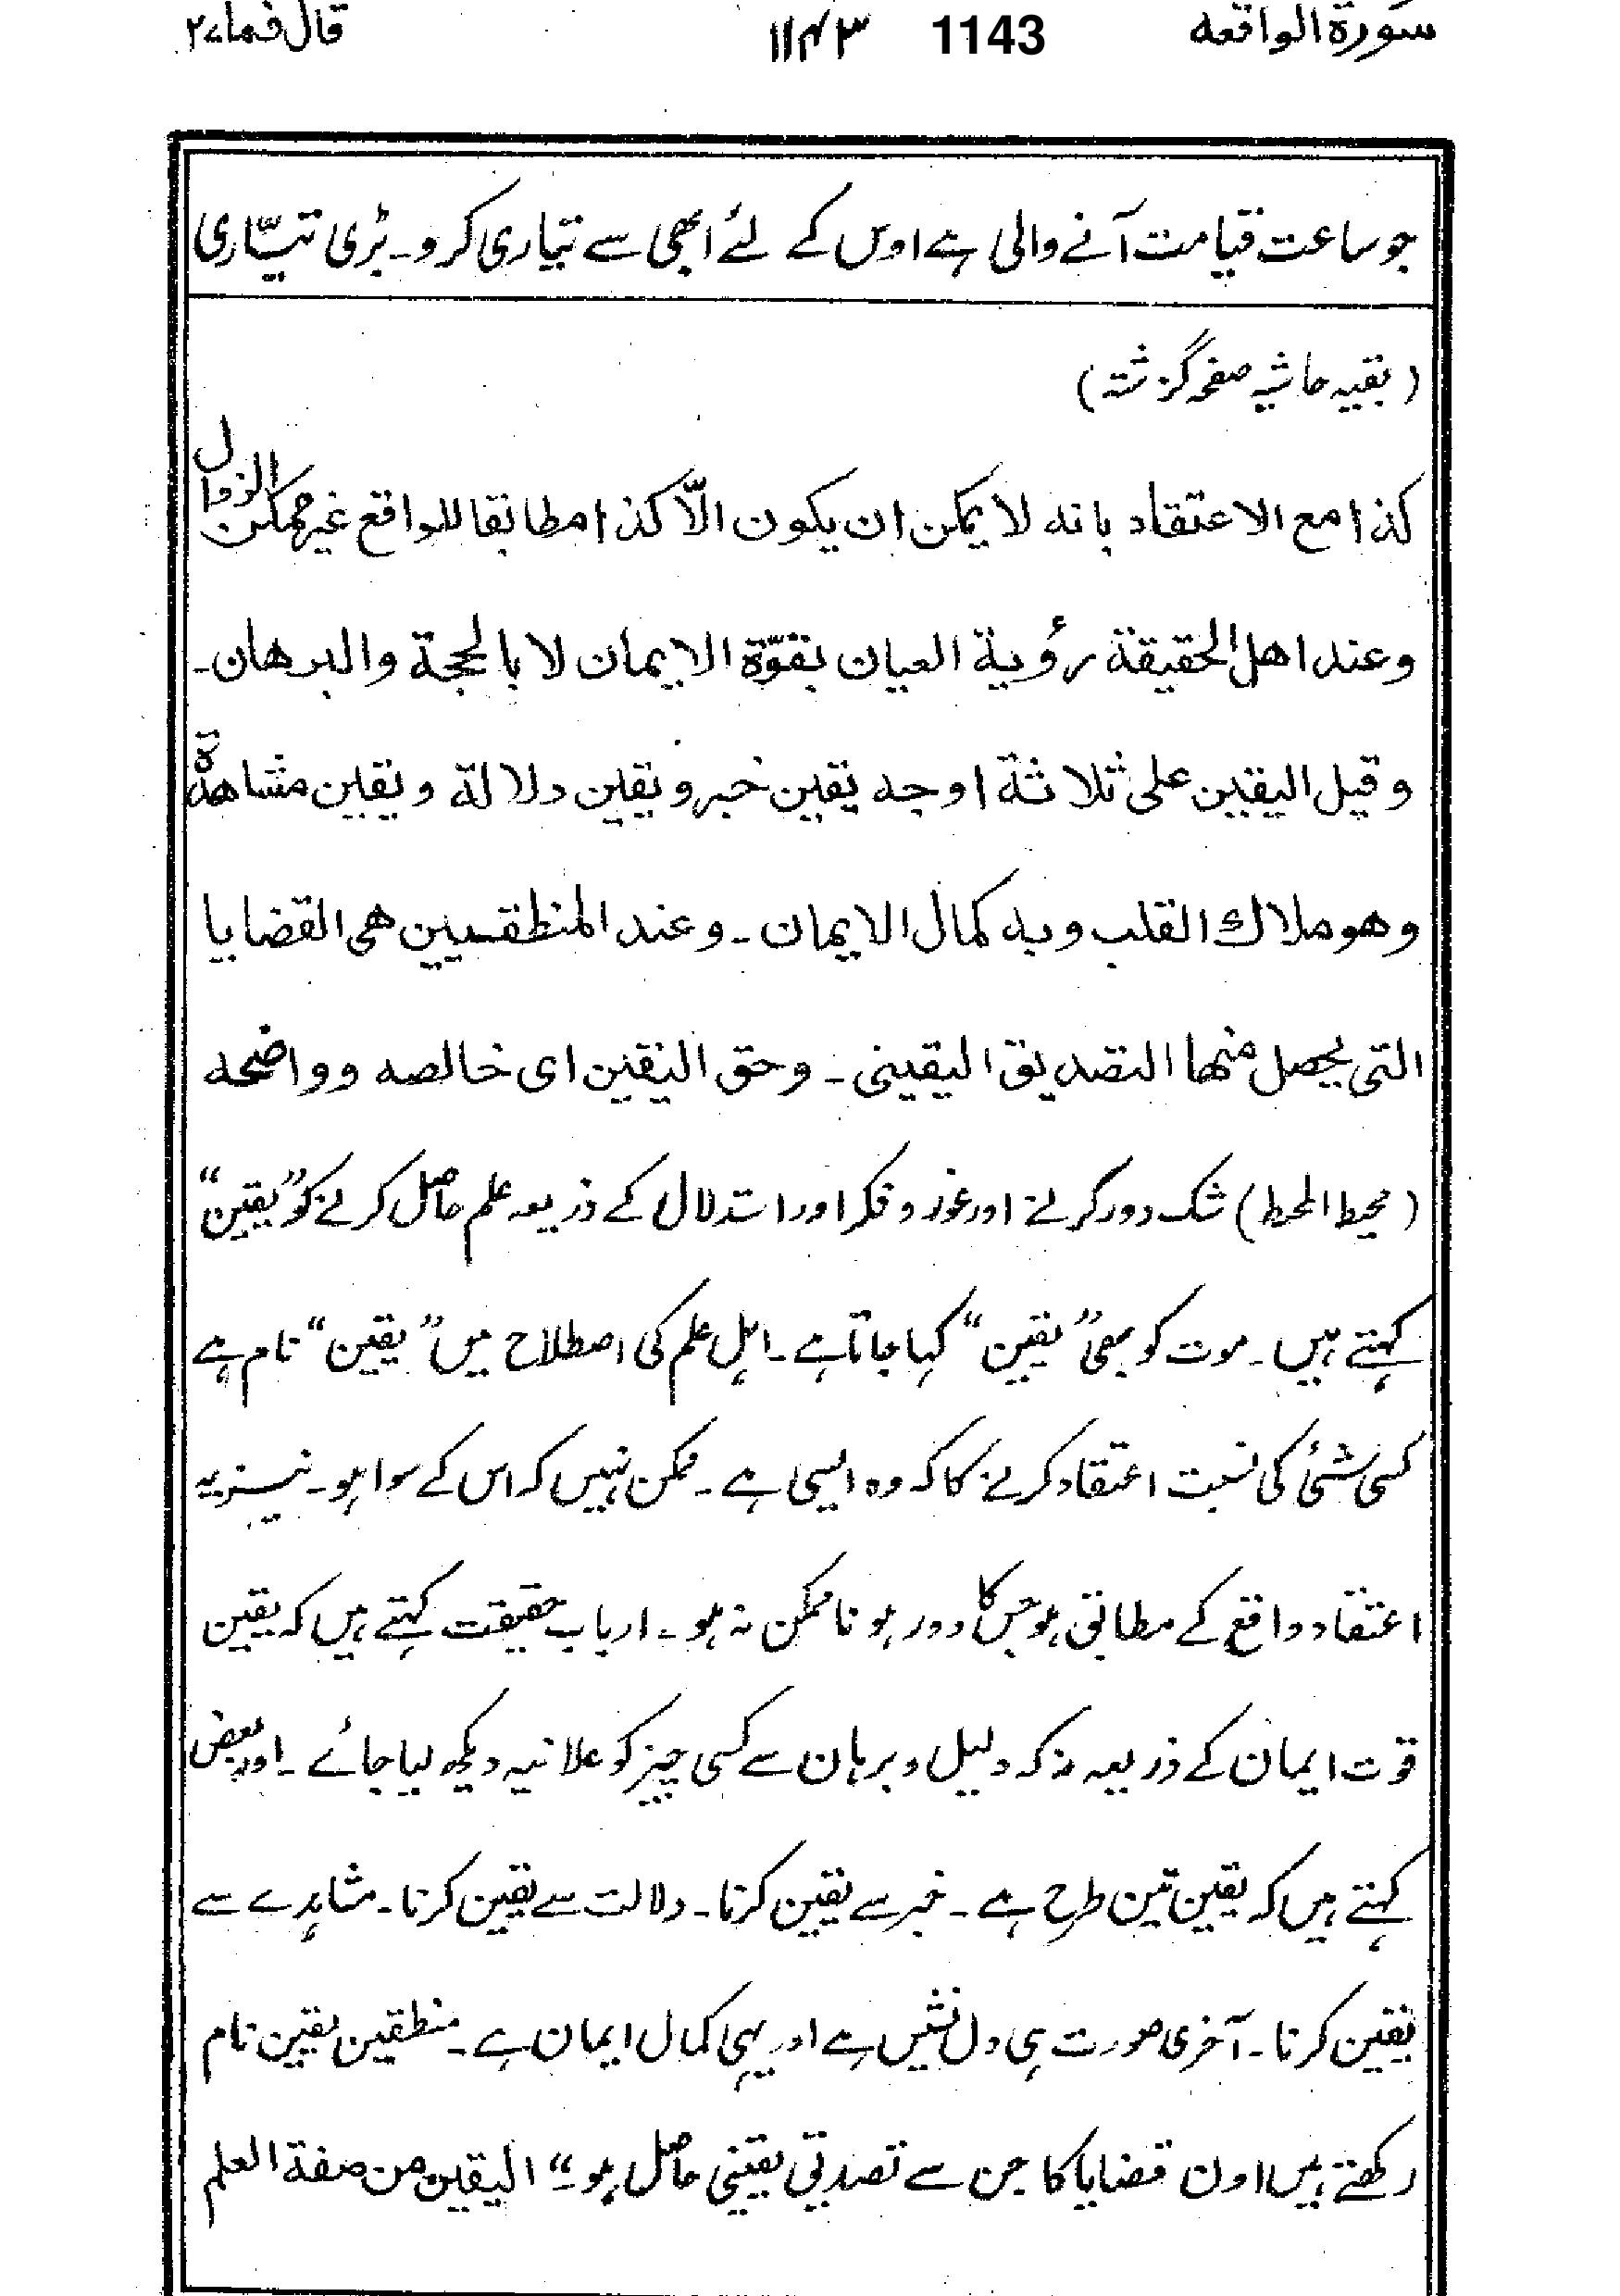 سورة الواقعه 1143 ۱۱۴۳ قال فما ۲۷
جو ساعت قیامت آنے والی ہے اوس کے لئے ابھی سے تیاری کرو۔ بڑی تیّاری
(بقیہ حاشیہ صفحہ گزشتہ)
كذا مع الاعتقاد بانه لا يمكن ان يكون الّا كذا مطابقا للواقع غير ممكن الزوال
وعند اهل الحقيقة رؤية العيان بقوّة الايمان لا بالحجة والبرهان۔
وقيل اليقين على ثلاثة اوجه يقين خبر ويقين دلالة ويقين مشاهدة
وهو ملاك القلب وبه كمال الايمان۔ وعند المنطقيين هى القضايا
التى يحصل منها التصديق اليقينى۔ وحق اليقين اى خالصه وواضحه
(محیط المحیط) شک دور کرنے اور غور و فکر اور استدلال کے ذریعہ علم حاصل کرنے کو ”یقین“
کہتے ہیں۔ موت کو بھی ”یقین“ کہا جاتا ہے۔ اہل علم کی اصطلاح میں ”یقین“ نام ہے
کسی شئی کی نسبت اعتقاد کرنے کا کہ وہ ایسی ہے۔ ممکن نہیں کہ اس کے سوا ہو۔ نیز یہ
اعتقاد واقع کے مطابق ہو جس کا دور ہونا ممکن نہ ہو۔ ارباب حقیقت کہتے ہیں کہ یقین
قوت ایمان کے ذریعہ نہ کہ دلیل و برہان سے کسی چیز کو علانیہ دیکھ لیا جائے۔ اور بعض
کہتے ہیں کہ یقین تین طرح ہے۔ خبر سے یقین کرنا۔ دلالت سے یقین کرنا۔ مشاہدے سے
یقین کرنا۔ آخری صورت ہی دل نشیں ہے اور یہی کمال ایمان ہے۔ منطقین یقین نام
رکھتے ہیں اون قضایا کا جن سے تصدیق یقینی حاصل ہو۔“ اليقين من صفة العلم